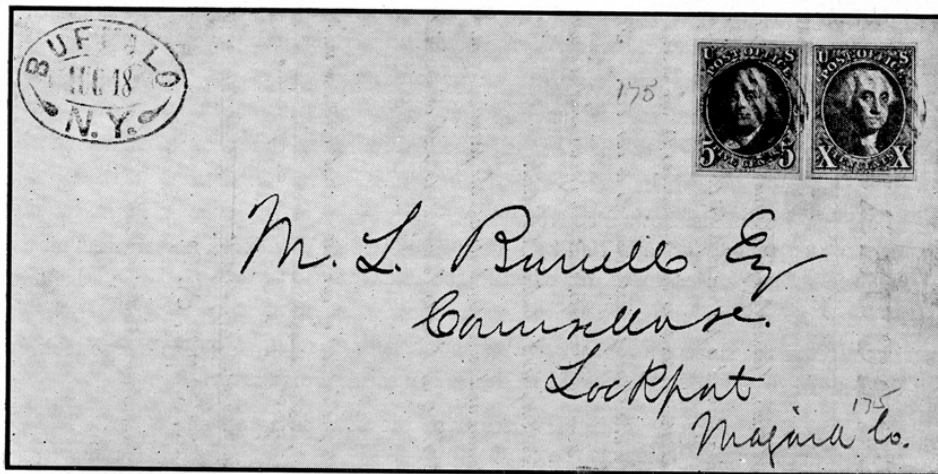 BUFFALO
AUG 18
N.Y.
175
U S
POST OFFICE
5 FIVE CENTS 5
U S
POST OFFICE
X TEN CENTS X
M. L. Burrell Esq
Counsellor.
Lockport
175
Niagara Co.